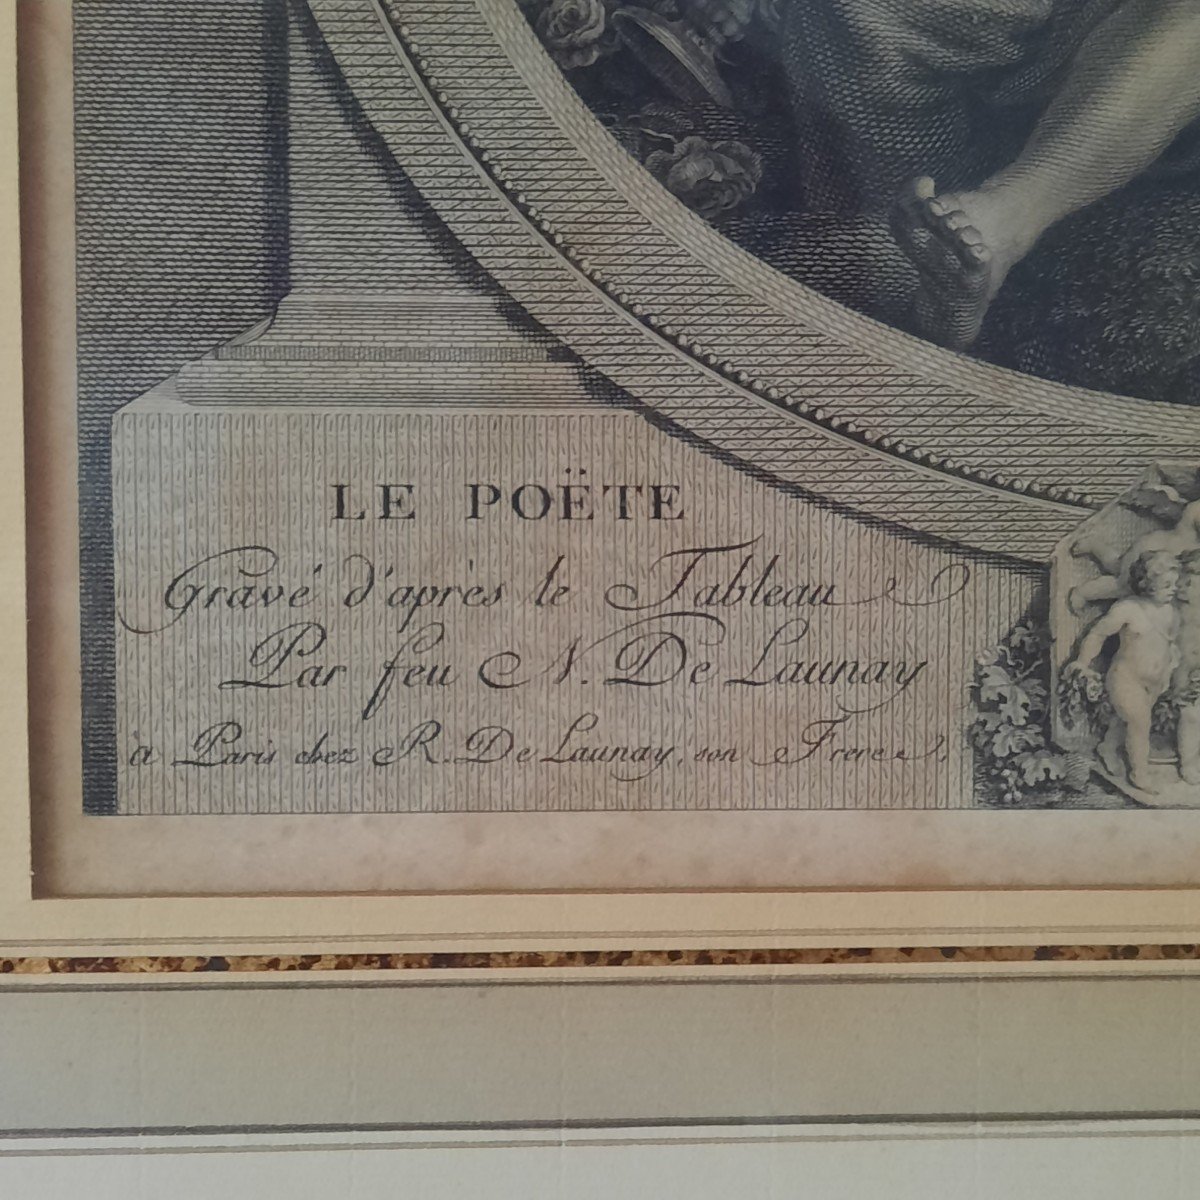 LE POËTE
Gravé d'après le Tableau
Par feu N. De Launay
à Paris chez R. De Launay, son Frere.